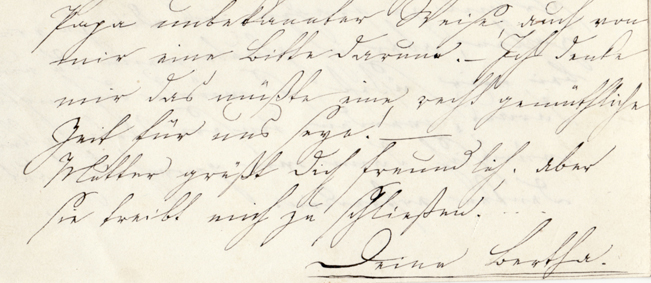 Papa unbekannter Weise, auch von
mir eine Bitte darum. – Ich denke
mir das müßte eine recht gemüthliche
Zeit für uns seyn! —
Mutter grüßt Dich freundlich. aber
sie treibt mich zu schließen.
Deine Bertha.